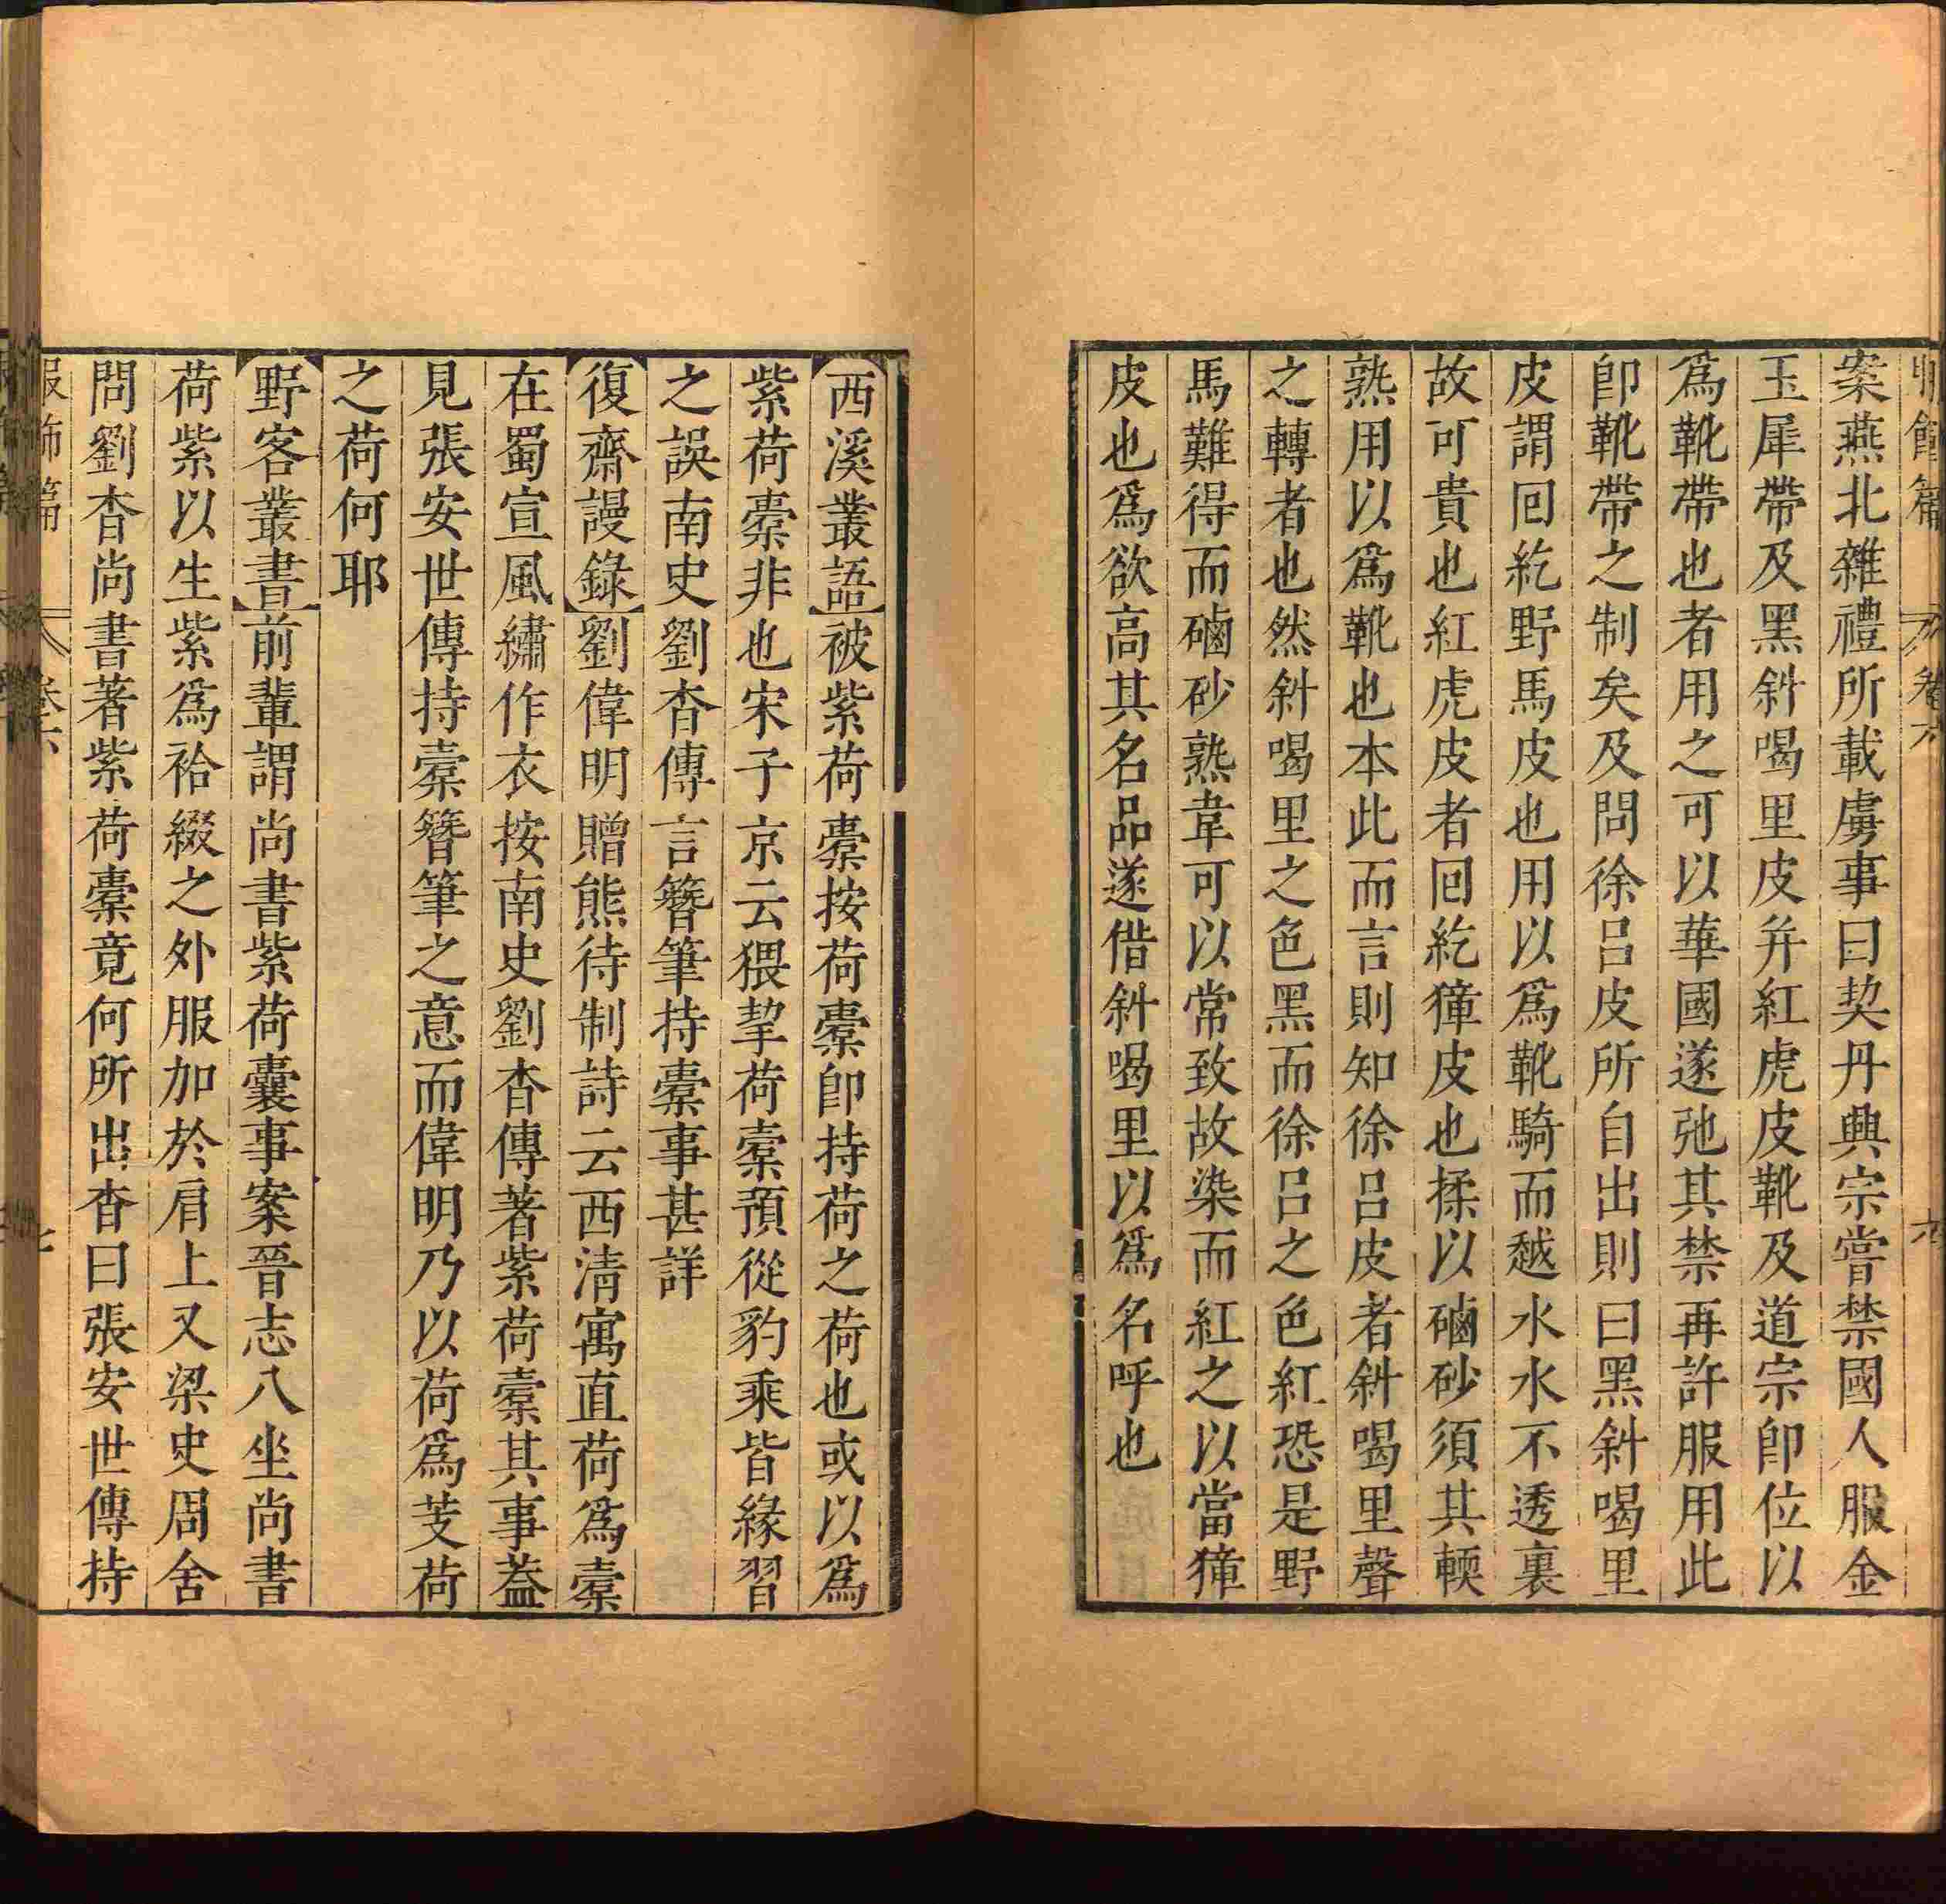 案燕北雜禮所載虜事曰契丹興宗嘗禁國人服金
玉犀帶及黑斜喝里皮并紅虎皮靴及道宗卽位以
爲靴帶也者用之可以華國遂弛其禁再許服用此
卽靴帶之制矣及問徐呂皮所自出則曰黑斜喝里
皮謂回紇野馬皮也用以爲靴騎而越水水不透裏
故可貴也紅虎皮者回紇獐皮也揉以磠砂須其輭
熟用以爲靴也本此而言則知徐呂皮者斜喝里聲
之轉者也然斜喝里之色黑而徐呂之色紅恐是野
馬難得而磠砂熟韋可以常致故染而紅之以當獐
皮也爲欲高其名品遂借斜喝里以爲名呼也
【西溪叢語】被紫荷橐按荷橐卽持荷之荷也或以爲
紫荷橐非也宋子京云猥挈荷橐預從豹乘皆緣習
之誤南史劉杳傳言簪筆持橐事甚詳
【復齋謾錄】劉偉明贈熊待制詩云西清寓直荷爲橐
在蜀宣風繡作衣按南史劉杳傳著紫荷橐其事蓋
見張安世傳持橐簪筆之意而偉明乃以荷爲芰荷
之荷何耶
【野客叢書】前輩謂尚書紫荷囊事案晉志八坐尚書
荷紫以生紫爲袷綴之外服加於肩上又梁史周舍
問劉杳尚書著紫荷橐竟何所出杳曰張安世傳持
服飾篇 卷六